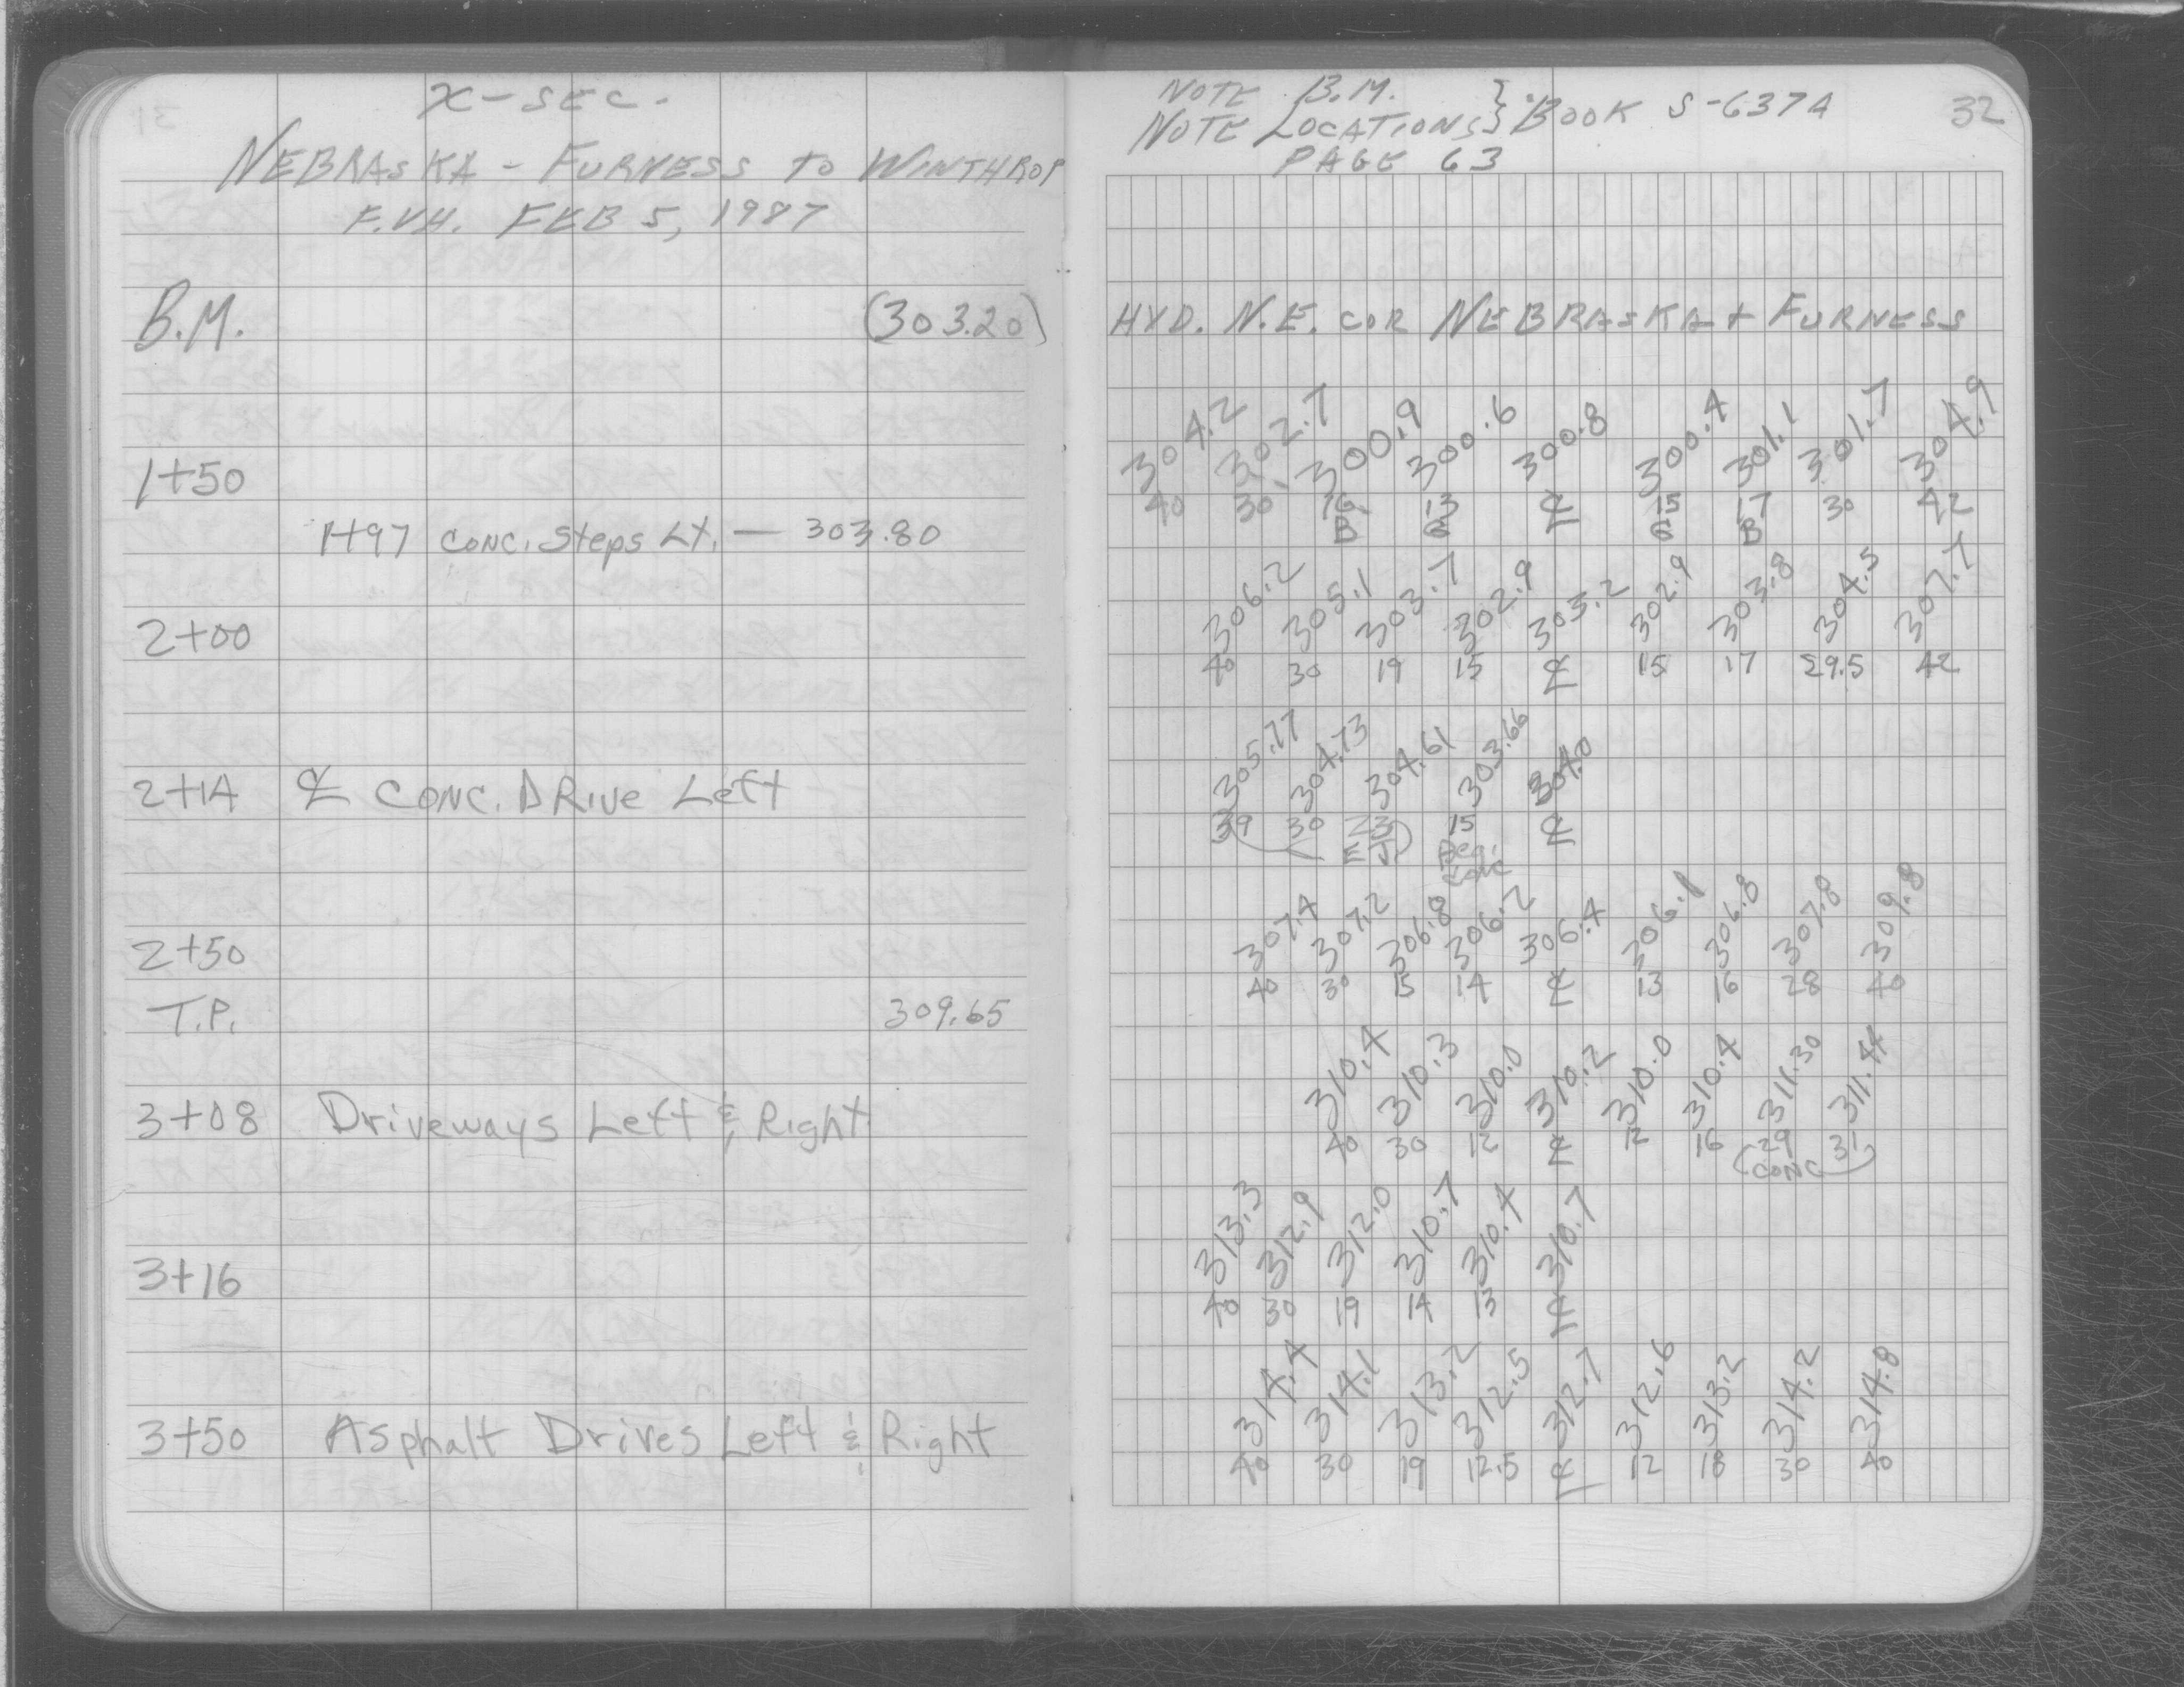 X-SEC.
NEBRASKA - FURNESS TO WINTHROP
F.V.H. FEB 5, 1987
B.M. (303.20)
1+50
1+97 CONC. Steps Lt. — 303.80
2+00
2+14 ℄ CONC. DRive Left
2+50
T.P. 309.65
3+08 Driveways Left & Right
3+16
3+50 Asphalt Drives Left & Right
NOTE B.M. } BOOK S-637A 32
NOTE LOCATIONS }
PAGE 63
HYD. N.E. COR NEBRASKA + FURNESS
304.2 302.7 300.9 300.6 300.8 300.4 301.1 301.7 304.9
40 30 16 13 ℄ 15 17 30 42
B G G B
306.2 305.1 303.7 302.9 303.2 302.9 303.8 304.5 307.7
40 30 19 15 ℄ 15 17 29.5 42
305.77 304.73 304.61 303.66 304.0
39 30 23 15 ℄
E.J. Beg.
CONC
307.4 307.2 306.8 306.2 306.4 306.1 306.8 307.8 309.8
40 30 15 14 ℄ 13 16 28 40
310.4 310.3 310.0 310.2 310.0 310.4 311.30 311.44
40 30 12 ℄ 12 16 29 31
CONC
313.3 312.9 312.0 310.7 310.4 310.7
40 30 19 14 13 ℄
314.4 314.1 313.2 312.5 312.7 312.6 313.2 314.2 314.8
40 30 19 12.5 ℄ 12 18 30 40